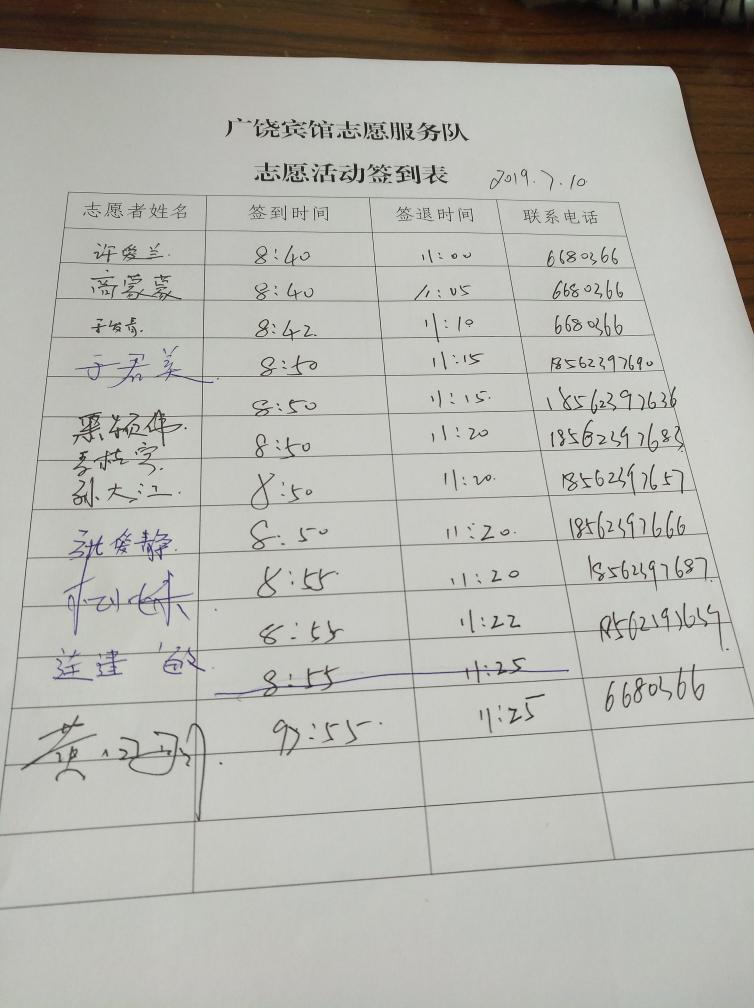 广饶宾馆志愿服务队
志愿活动签到表 2019.7.10
志愿者姓名 签到时间 签退时间 联系电话
许爱兰. 8:40 11:00 6680366
商蒙蒙 8:40 11:05 6680366
8:42 11:10 6680366
于君美. 8:50 11:15 18562397690
8:50 11:15. 18562397636
栗颖伟 8:50 11:20 18562397683
李桂宇
孙大江. 8:50 11:20. 18562397657
张爱静. 8:50 11:20. 18562397666
8:55 11:20 18562397687
8:55 11:22 18562397659
连建敏 8:55 11:25
黄 :55. 11:25 6680366